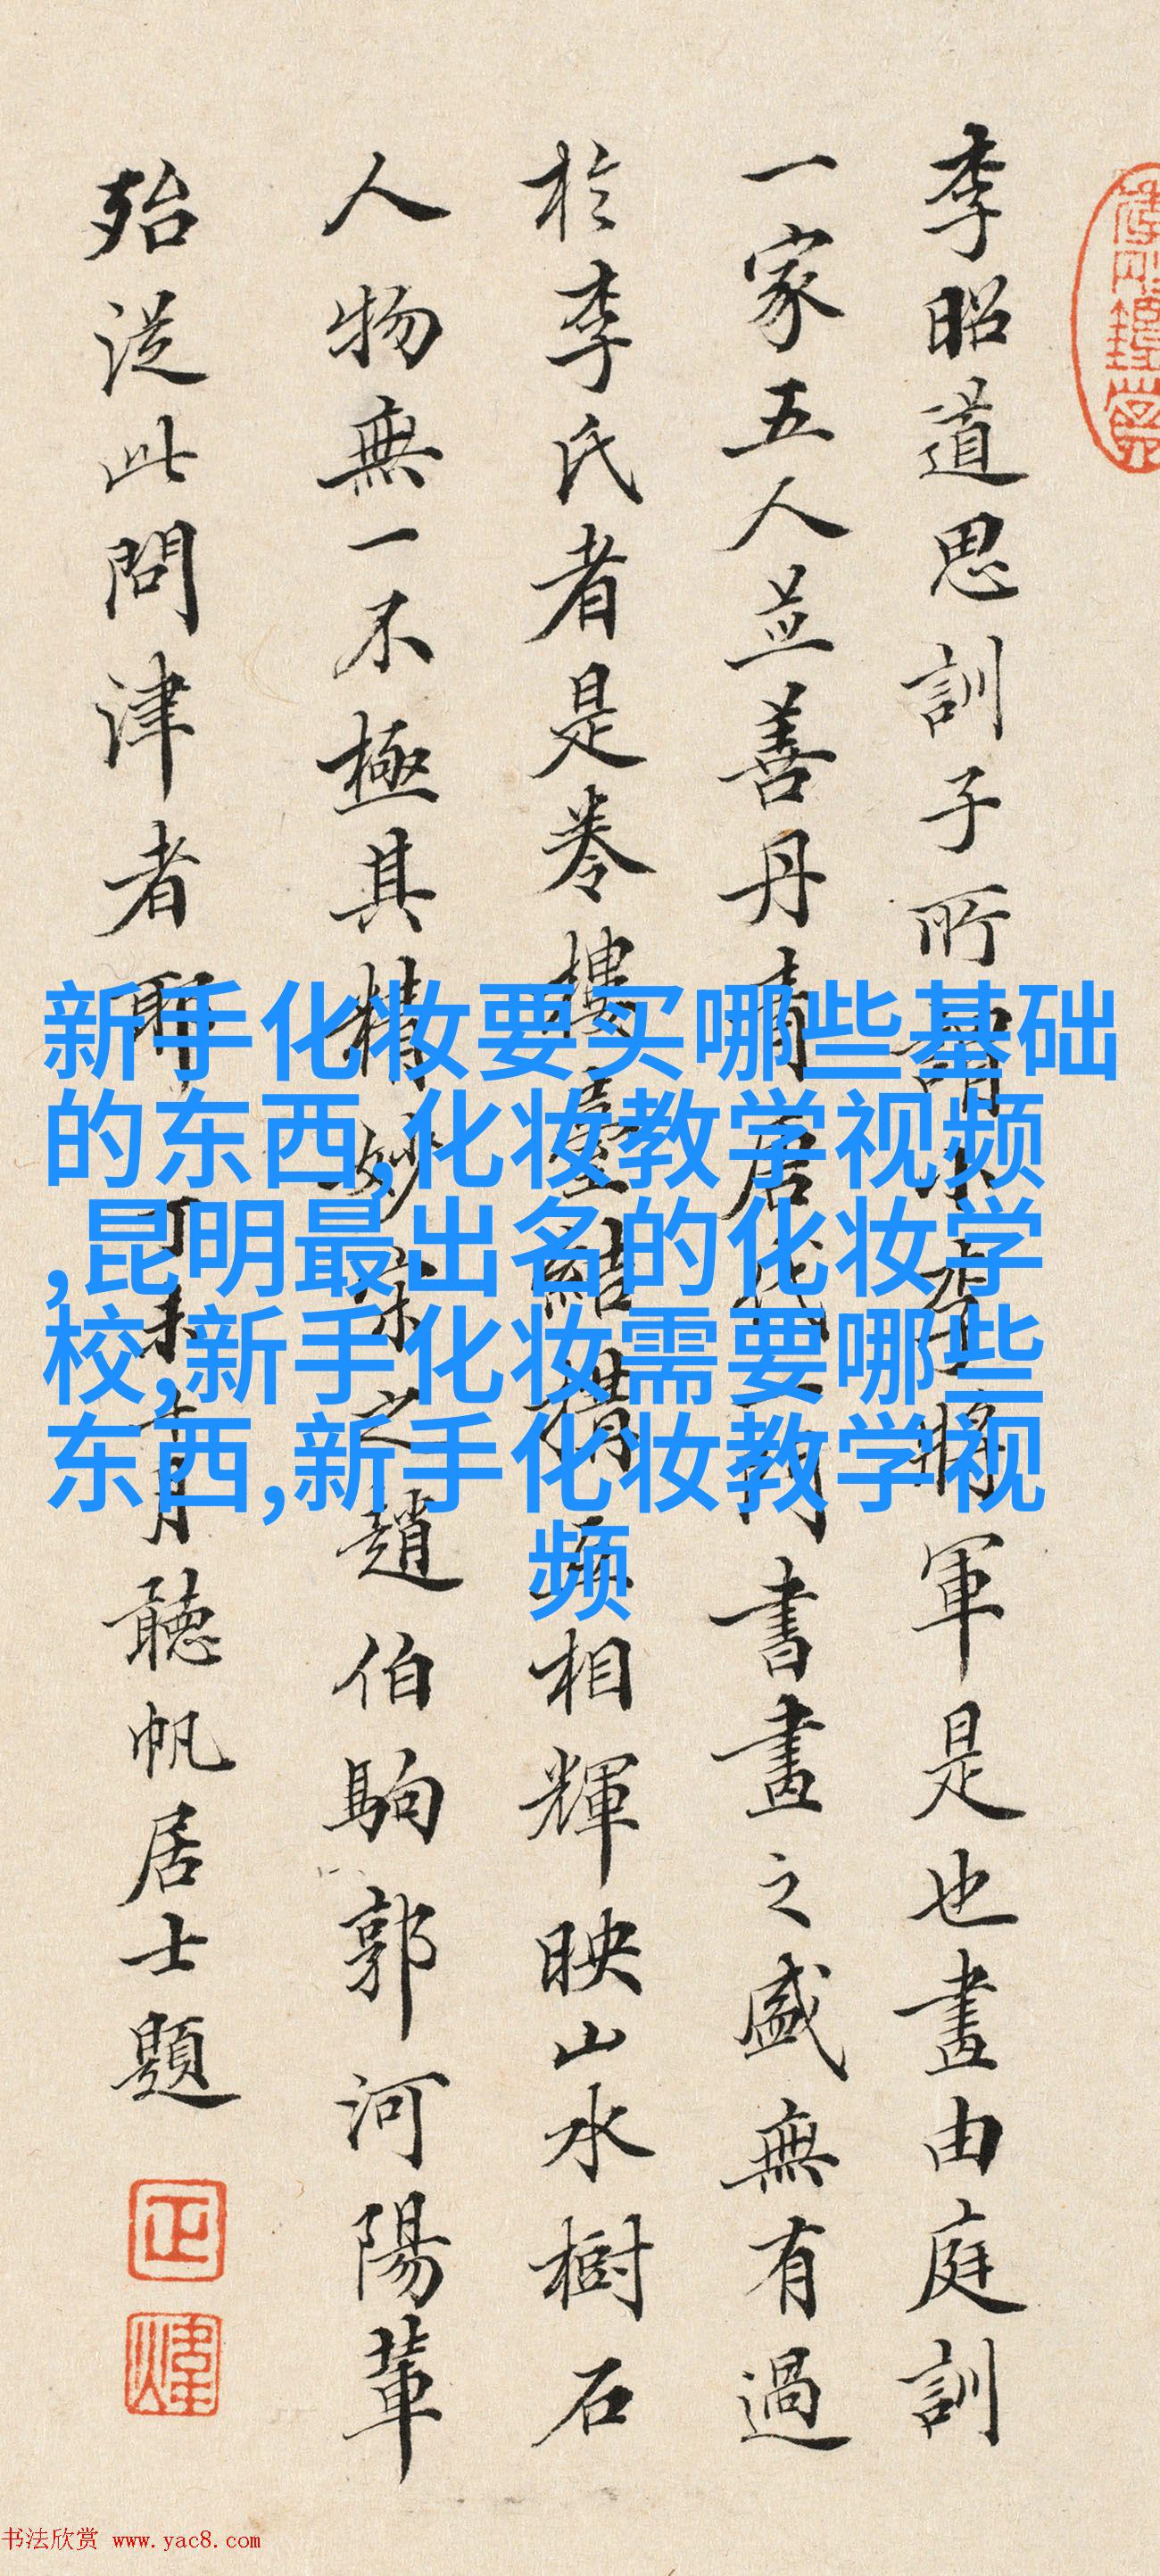 李昭道思訓子所謂小李將軍是也畫由庭訓
一家五人並善丹青唐代一門書畫之盛無有過
於李氏者是卷樓臺結構 相輝映山水樹石
人物無一不極其精妙宋之趙伯駒郭河陽輩
殆從此問津者耶 丁未十月聽帆居士題
新手化妆要买哪些基础
的东西,化妆教学视频
,昆明最出名的化妆学
校,新手化妆需要哪些
东西,新手化妆教学视
频
书法欣赏 www.yac8.com